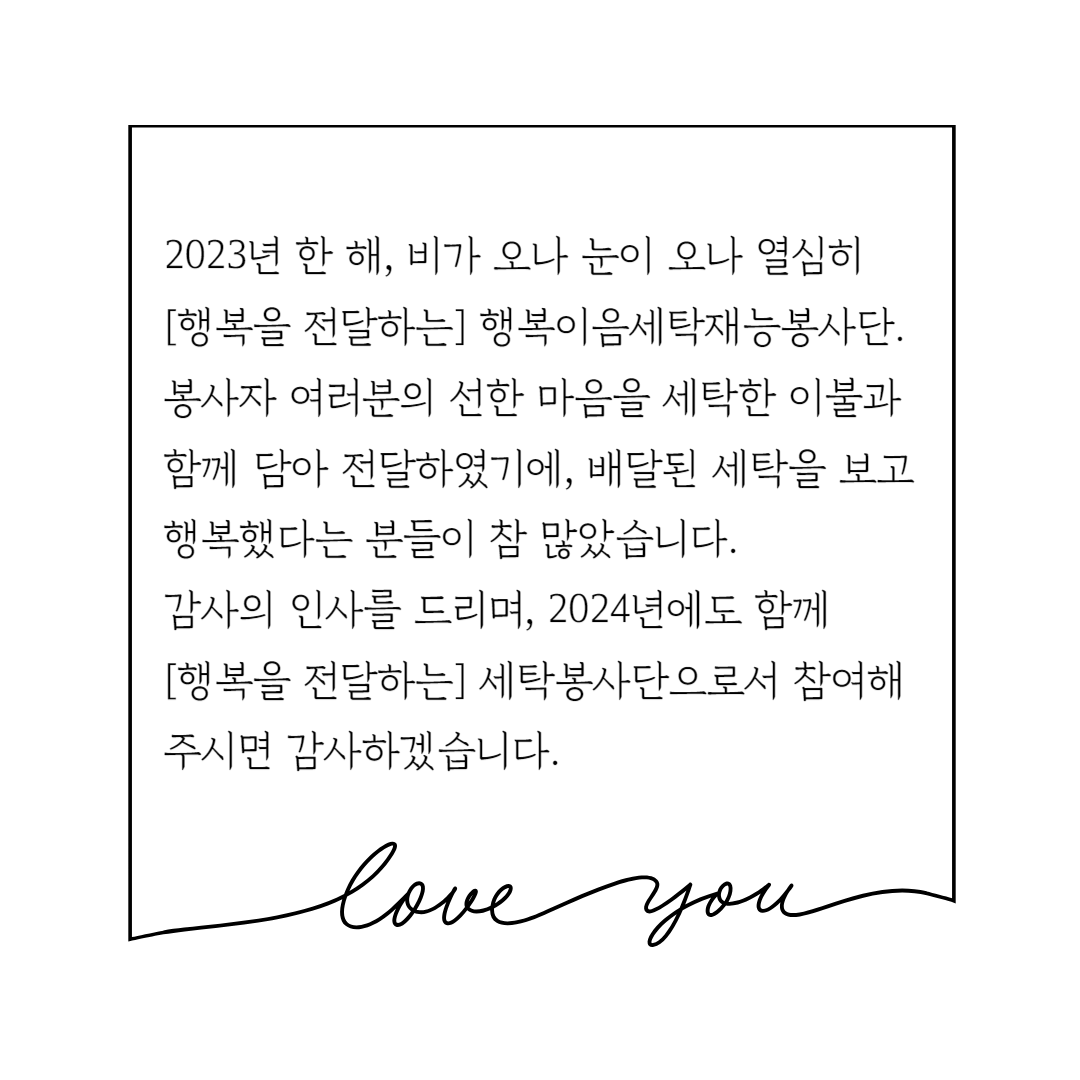 2023년 한 해, 비가 오나 눈이 오나 열심히
[행복을 전달하는] 행복이음세탁재능봉사단.
봉사자 여러분의 선한 마음을 세탁한 이불과
함께 담아 전달하였기에, 배달된 세탁을 보고
행복했다는 분들이 참 많았습니다.
감사의 인사를 드리며, 2024년에도 함께
[행복을 전달하는] 세탁봉사단으로서 참여해
주시면 감사하겠습니다.
love you